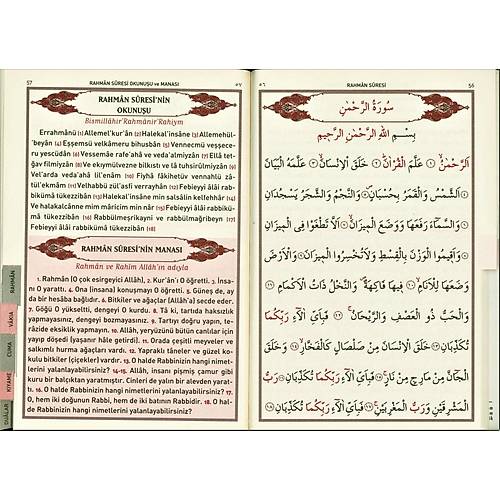 57
RAHMÂN SÛRESİ OKUNUŞU ve MANASI
٥٧
RAHMÂN SÛRESİ'NİN
OKUNUŞU
Bismillâhir'Rahmânir'Rahiym
Errahmânü (1) Allemel'kur'ân (2) Halekal'insâne (3) Allemehül-
'beyân (4) Eşşemsü velkâmeru bihusbân (5) Vennecmü veşşece-
ru yescüdân (6) Vessemâe rafe'ahâ ve veda'almiyzân (7) Ellâ tet-
ğav filmiyzân (8) Ve ekıymülvezne bilkıstı ve lâ tuhsirülmiyzân (9)
Vel'arda veda'ahâ lil'enâm (10) Fiyhâ fâkihetüv vennahlü zâ-
tül'ekmâm (11) Velhabbü zül'asfi verrayhân (12) Febieyyi âlâi rab-
bikümâ tükezzibân (13) Halekal'insâne min salsâlin kelfehhâr (14)
Ve halakalcânne min mâricim min nâr (15) Febieyyi âlâi rabbikü-
mâ tükezzibân (16) Rabbülmeşrikayni ve rabbülmağribeyn (17)
Febieyyi âlâi rabbikümâ tükezzibân (18)
RAHMÂN SÛRESİ'NİN MANASI
Rahmân ve Rahim Allâh'ın adıyla
1. Rahmân (O çok esirgeyici Allâh), 2. Kur'ân'ı O öğretti. 3. İnsa-
nı O yarattı. 4. Ona (insana) konuşmayı O öğretti. 5. Güneş de, ay
da bir hesâba bağlıdır. 6. Bitkiler ve ağaçlar (Allah'a) secde eder.
7. Göğü O yükseltti, dengeyi O kurdu. 8. Tâ ki, tartıda haksızlık
yapmayasınız, dengeyi bozmayasınız. 9. Tartıyı doğru yapın, te-
râzide eksiklik yapmayın. 10. Allâh, yeryüzünü bütün canlılar için
yayıp döşedi (yaşanır hâle getirdi). 11. Orada çeşitli meyveler ve
salkımlı hurma ağaçları vardı. 12. Yapraklı tâneler ve güzel ko-
kulu bitkiler (çiçekler) vardır. 13. O halde Rabbinizin hangi nimet-
lerini yalanlayabilirsiniz? 14-15. Allâh, insanı pişmiş çamur gibi
kuru bir balçıktan yaratmıştır. Cinleri de yalın bir alevden yarat-
tı. 16. O halde Rabbinizin hangi nimetlerini yalanlayabilirsiniz? 17.
O, hem iki doğunun Rabbi, hem de iki batının Rabbidir. 18. O hal-
de Rabbinizin hangi nimetlerini yalanlayabilirsiniz?
RAHMÂN
VÂKIA
CUMA
KIYAME
DUÂLAR
٥٦
RAHMÂN SÛRESİ
56
سُورَةُ الرَّحْمٰنِ
بِسْمِ اللّٰهِ الرَّحْمٰنِ الرَّحِيمِ
اَلرَّحْمٰنُ ﴿١﴾ عَلَّمَ الْقُرْاٰنَ ﴿٢﴾ خَلَقَ الْاِنْسَانَ ﴿٣﴾ عَلَّمَهُ الْبَيَانَ
﴿٤﴾ اَلشَّمْسُ وَالْقَمَرُ بِحُسْبَانٍ ﴿٥﴾ وَالنَّجْمُ وَالشَّجَرُ يَسْجُدَانِ
﴿٦﴾ وَالسَّمَٓاءَ رَفَعَهَا وَوَضَعَ الْمِيزَانَ ﴿٧﴾ اَلَّا تَطْغَوْا فِى الْمِيزَانِ
﴿٨﴾ وَاَقِيمُوا الْوَزْنَ بِالْقِسْطِ وَلَا تُخْسِرُوا الْمِيزَانَ ﴿٩﴾ وَالْاَرْضَ
وَضَعَهَا لِلْاَنَامِ ﴿١٠﴾ فِيهَا فَاكِهَةٌ وَالنَّخْلُ ذَاتُ الْاَكْمَامِ ﴿١١﴾
وَالْحَبُّ ذُو الْعَصْفِ وَالرَّيْحَانُ ﴿١٢﴾ فَبِاَىِّ اٰلَٓاءِ رَبِّكُمَا
تُكَذِّبَانِ ﴿١٣﴾ خَلَقَ الْاِنْسَانَ مِنْ صَلْصَالٍ كَالْفَخَّارِ ﴿١٤﴾ وَخَلَقَ
الْجَٓانَّ مِنْ مَارِجٍ مِنْ نَارٍ ﴿١٥﴾ فَبِاَىِّ اٰلَٓاءِ رَبِّكُمَا تُكَذِّبَانِ ﴿١٦﴾ رَبُّ
الْمَشْرِقَيْنِ وَرَبُّ الْمَغْرِبَيْنِ ﴿١٧﴾ فَبِاَىِّ اٰلَٓاءِ رَبِّكُمَا تُكَذِّبَانِ ﴿١٨﴾